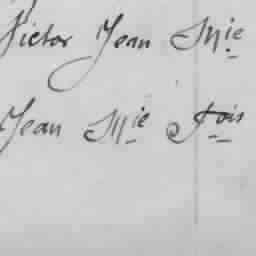 Victor Jean Mie
Jean Mie Fois